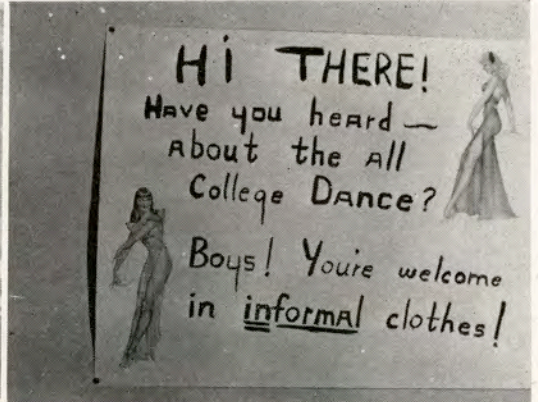 Hi THERE!
HAve you heArd —
About the All
College DAnce?
Boys! You're welcome
in informAl clothes!